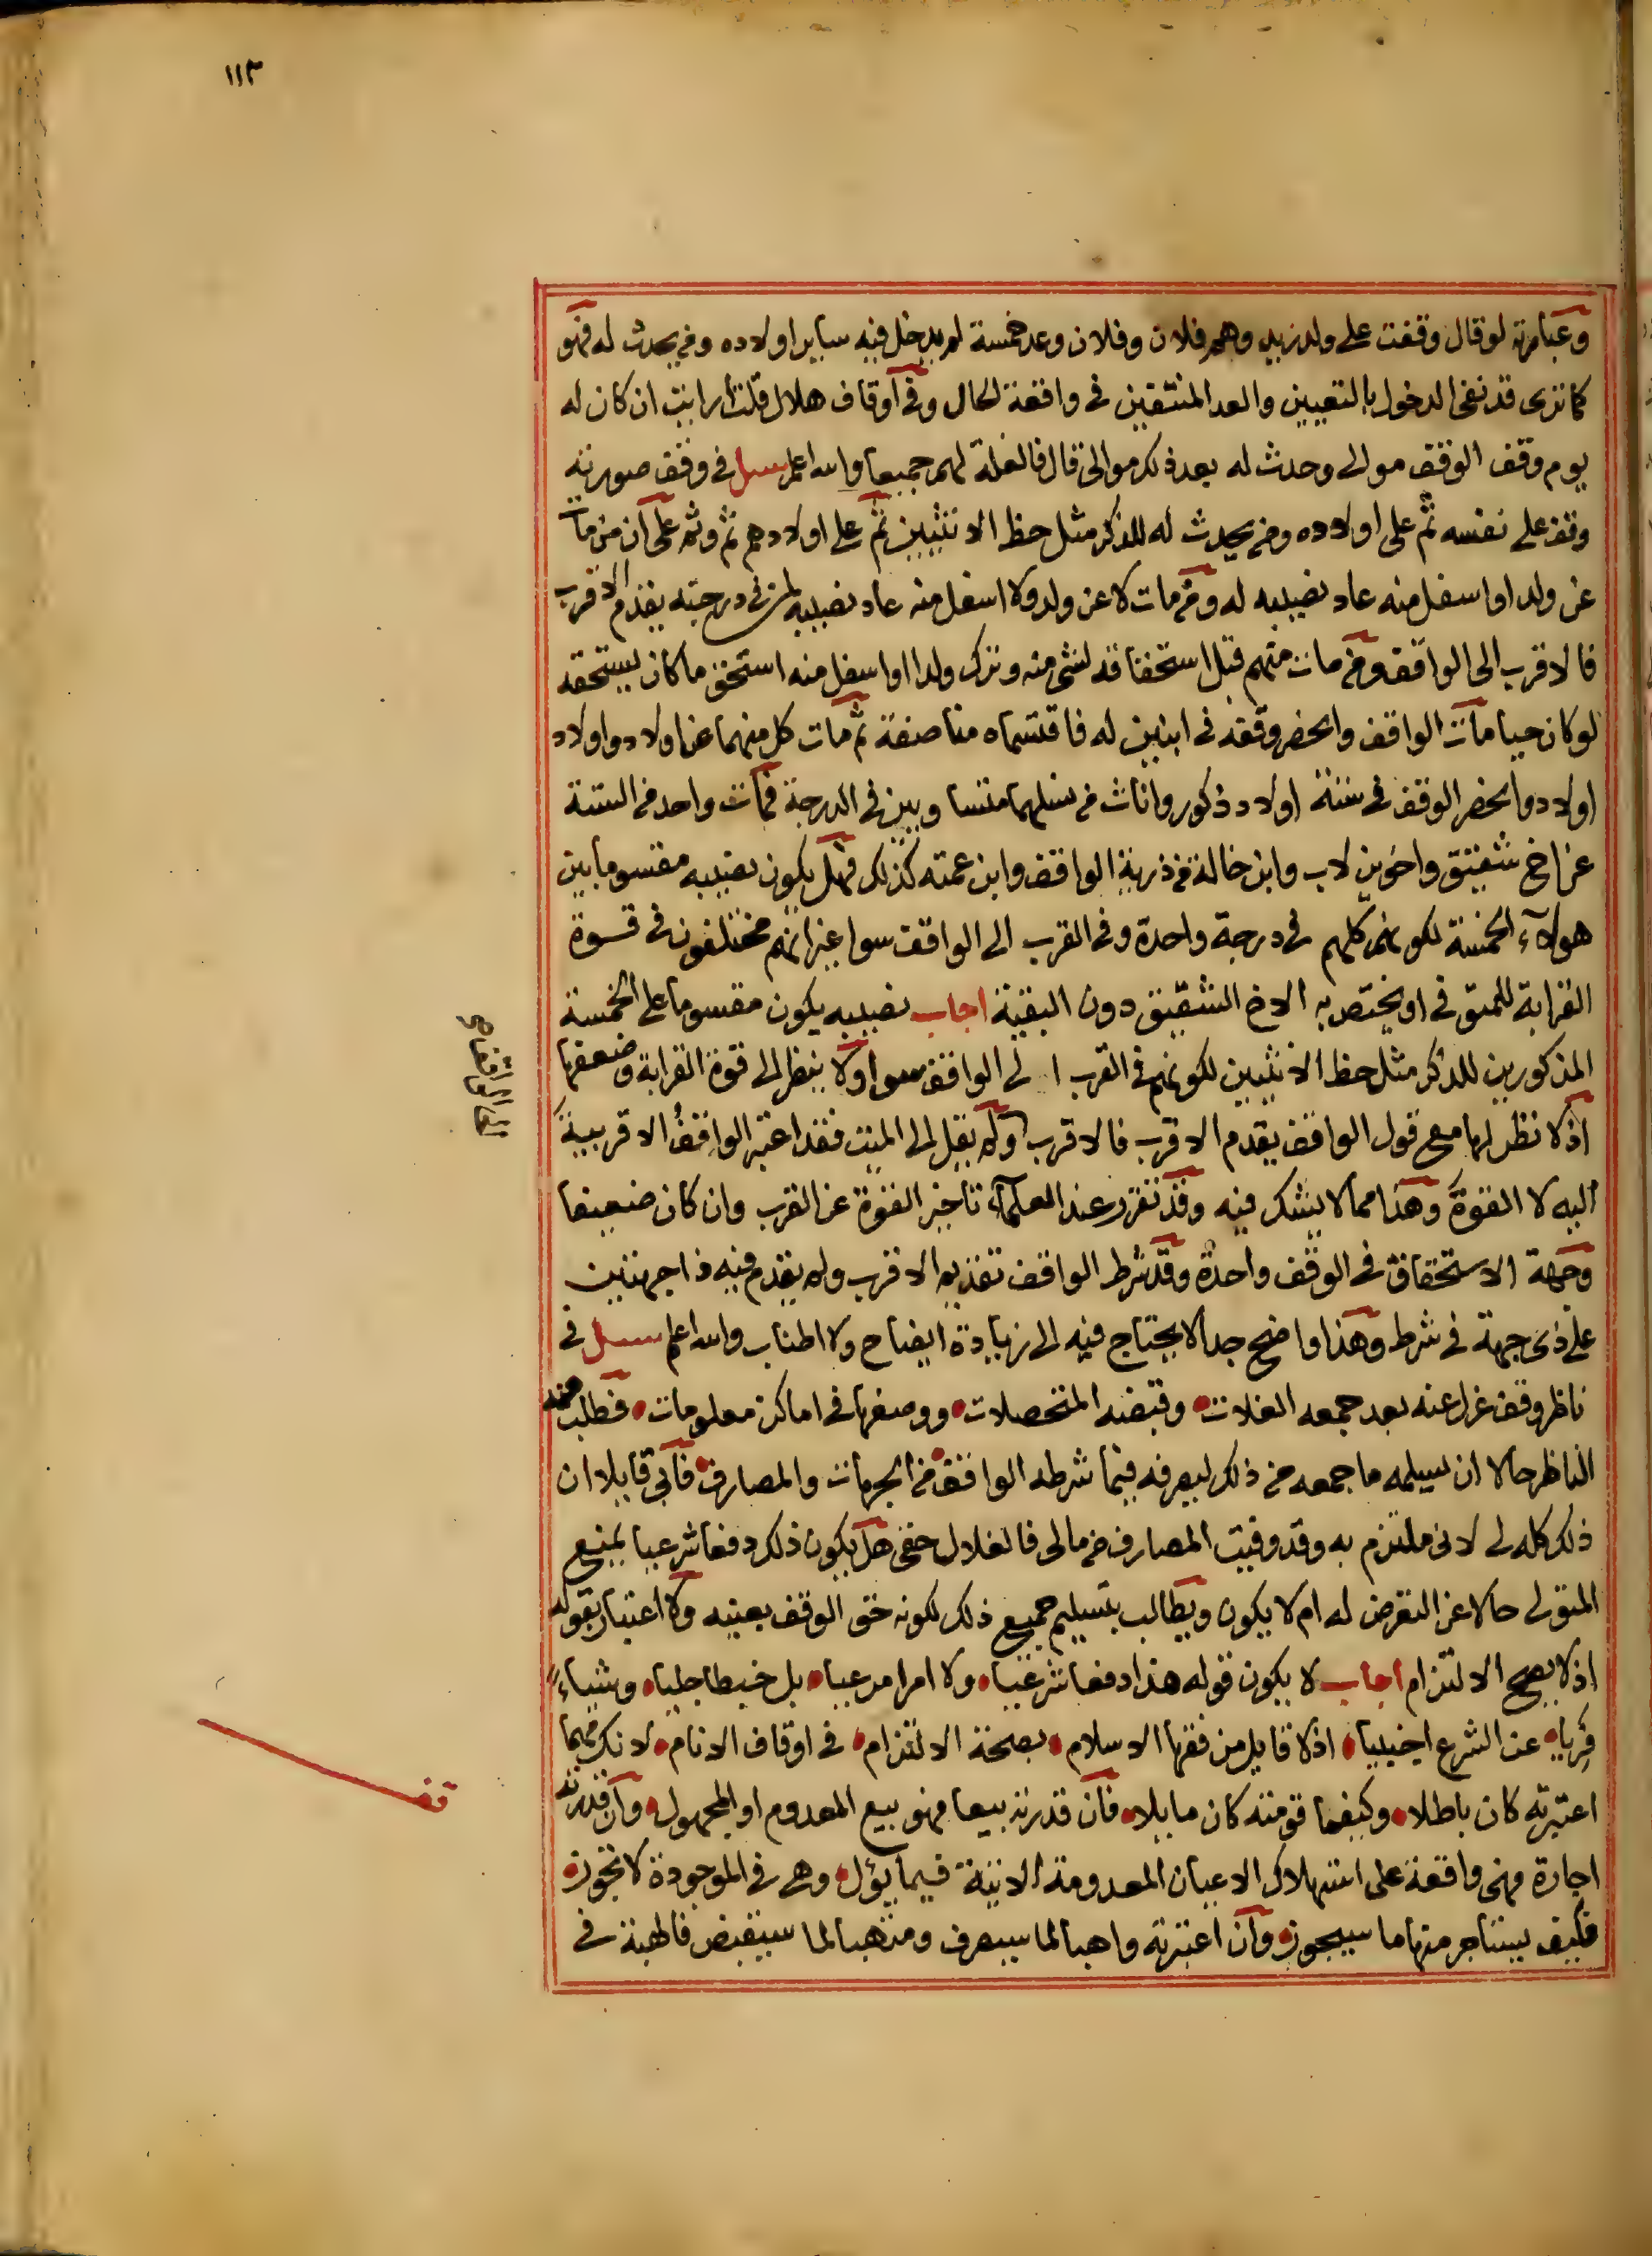 ١١٣
وعبارته لو قال وقفت على ولد زيد وهم فلان وفلان وعد خمسة لم يدخل فيه ساير اولاده ومن يحدث له فهو
كما ترى قد نفى الدخول بالتعيين والعد المنتفيين في واقعة الحال وفي اوقاف هلال قلت ارايت ان كان له
يوم وقف الوقف موالى وحدث له بعد ذلك موالى قال فالغلة لهم جميعا والله اعلم سئل في وقف صورته
وقف على نفسه ثم على اولاده ومن يحدث له للذكر مثل حظ الانثيين ثم على اولادهم ثم وثم على ان من مات
عن ولد او اسفل منه عاد نصيبه له ومن مات لا عن ولد ولا اسفل منه عاد نصيبه لمن في درجته يقدم الاقرب
فالاقرب الى الواقف ومن مات منهم قبل استحقاقه لشي منه وترك ولدا او اسفل منه استحق ما كان يستحقه
لو كان حيا مات الواقف وانحصر وقفه في ابنين له فاقتسماه مناصفة ثم مات كل منهما عن اولاد واولاد
اولاد وانحصر الوقف في ستة اولاد ذكور واناث من نسلهما متساويين في الدرجة فمات واحد من الستة
عن اخ شقيق واخوين لاب وابن خالة من ذرية الواقف وابن عمته كذلك فهل يكون نصيبه مقسوما بين
هولاء الخمسة لكونهم كلهم في درجة واحدة وفي القرب الى الواقف سوا غير انهم مختلفون في قسوة
القرابة للمتوفى او يختص به الاخ الشقيق دون البقية اجاب نصيبه يكون مقسوما على الخمسة
المذكورين للذكر مثل حظ الانثيين لكونهم في القرب الى الواقف سوا ولا ينظر الى قوة القرابة وضعفها
اذ لا نظر لها مع قول الواقف يقدم الاقرب فالاقرب ولم يقل الى الميت فقد اعتبر الواقف الاقربية
اليه لا القوة وهذا مما لا يشك فيه وقد تقرر عند العلماء تاخير القوة عن القرب وان كان ضعيفا
وجهة الاستحقاق في الوقف واحدة وقد شرط الواقف تقديم الاقرب ولم يقدم فيه ذا جهتين
على ذي جهة في شرط وهذا واضح جدا لا يحتاج فيه الى زيادة ايضاح ولا اطناب والله اعلم سئل في
ناظر وقف عزل عنه بعد جمعه الغلات وقبضه المتحصلات ووضعها في اماكن معلومات فطلب منه
الناظر حالا ان يسلمه ما جمعه من ذلك ليصرفه فيما شرطه الواقف من الجهات والمصارف فابى قايلا ان
ذلك كله لي لاني ملتزم به وقد وفيت المصارف من مالي فالغلال حقي هل يكون ذلك دفعا شرعيا يمنع
المتولي حالا عن التعرض له ام لا يكون ويطالب بتسليم جميع ذلك لكونه حق الوقف بعينه ولا اعتبار بقوله
اذ لا يصح الالتزام اجاب لا يكون قوله هذا دفعا شرعيا ولا امرا مرعيا بل خبطا جليا وشياء
فريا عن الشرع اجنبيا اذ لا قايل من فقها الاسلام بصحة الالتزام في اوقاف الانام لانك مهما
اعتبرته كان باطلا وكيفما قومته كان مايلا فان قدرته بيعا فهو بيع المعدوم او المجهول وان قدرته
اجارة فهي واقعة على استهلاك الاعيان المعدومة الاتية فيما يؤل وهي في الموجودة لا تجوز
فكيف يستاجر منها ما سيجوز وان اعتبرته واهبا لما سيصرف ومتهبا لما سيقبض فالهبة في